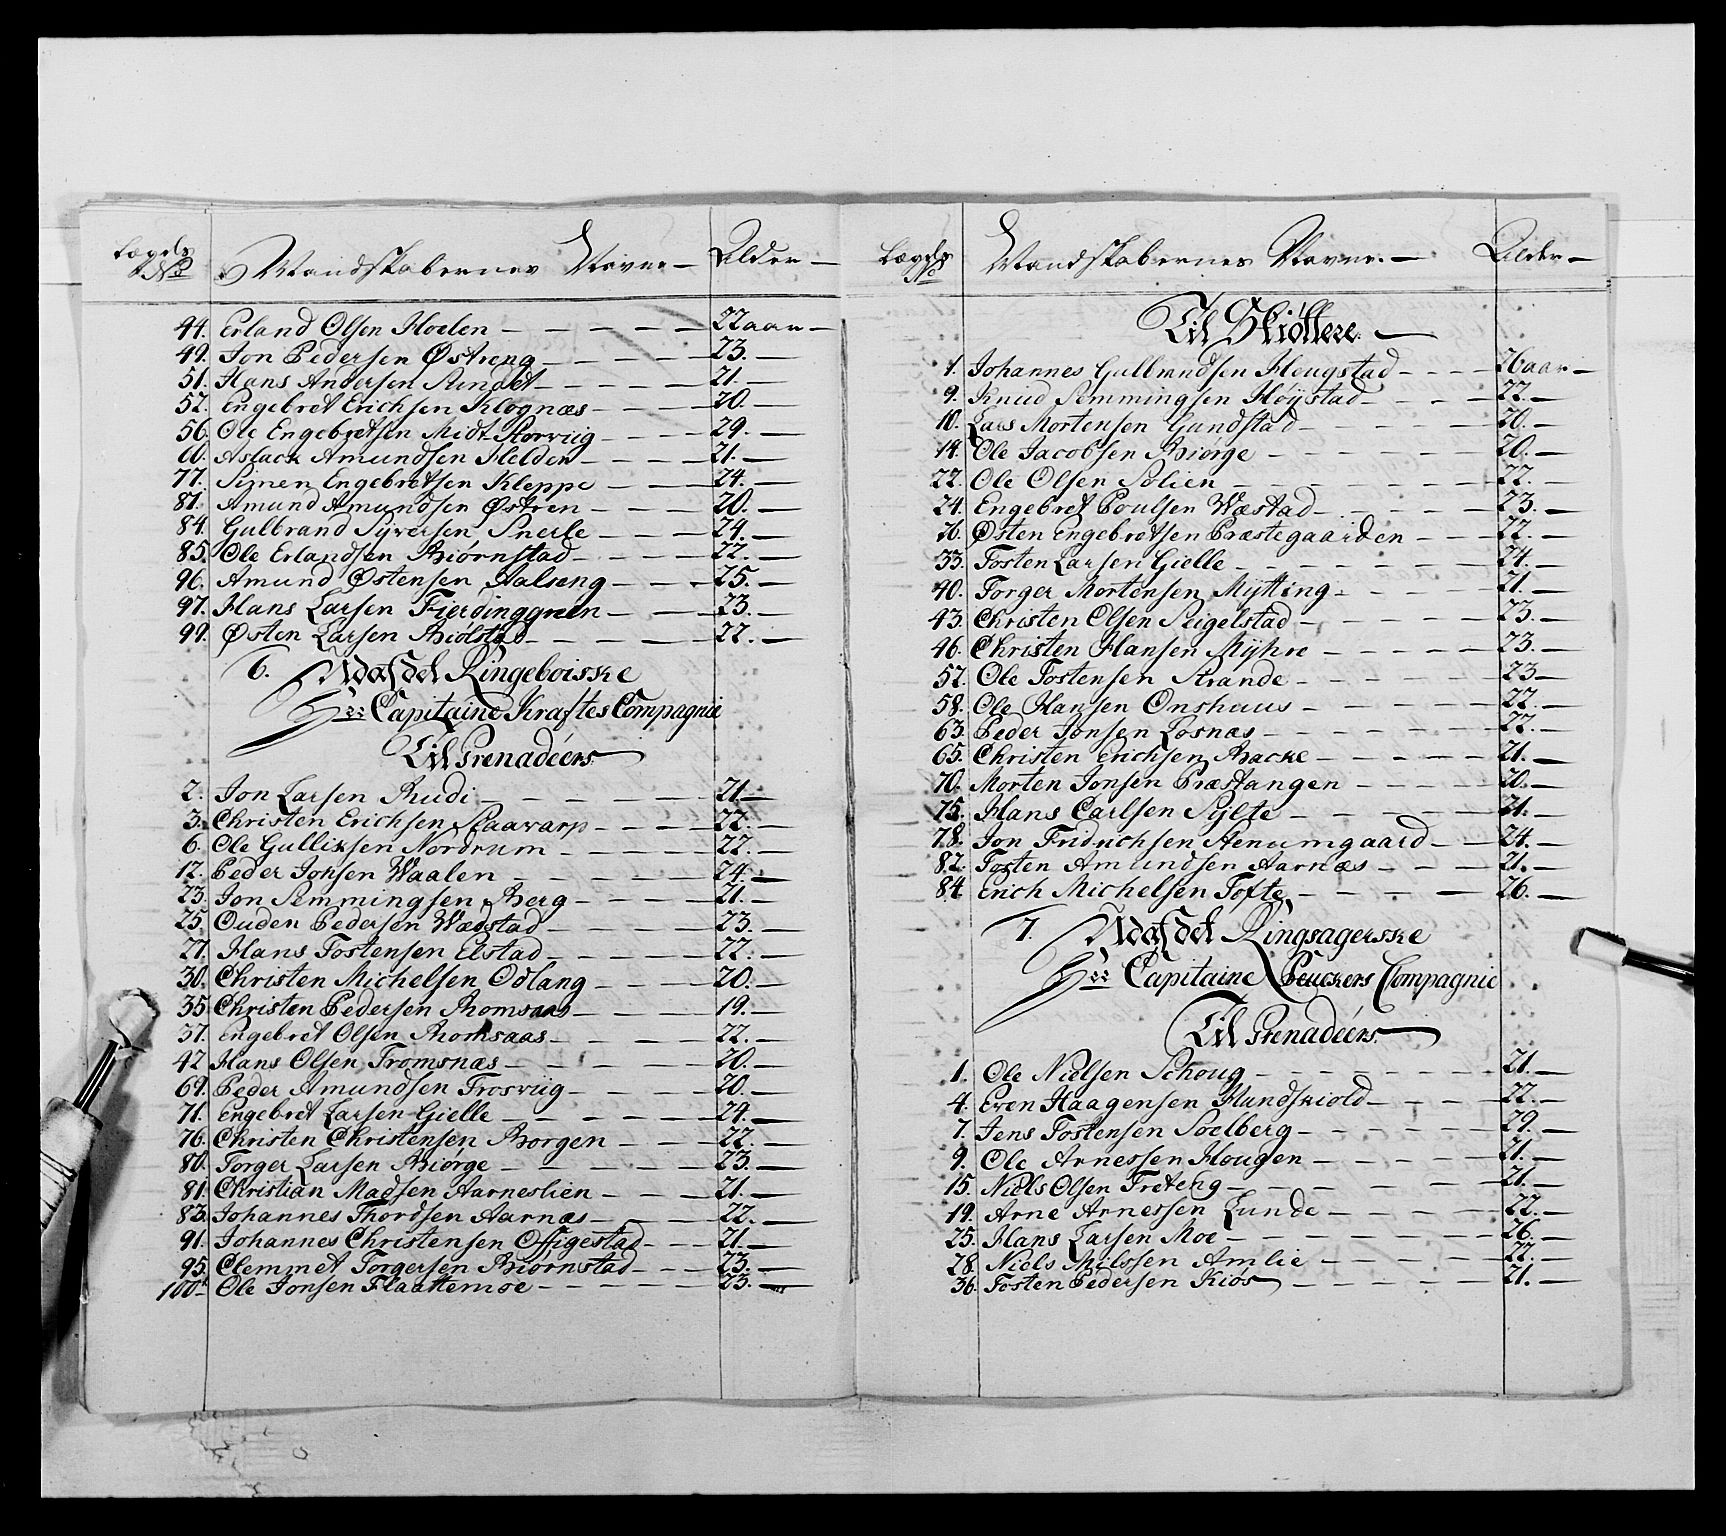 Lægds No Mandskabernes Navne Alder
44. Erland Olsen Hoelen 22 aar
49. Jon Pedersen Østreng 23.
51. Hans Andersen Sundet 21.
52. Engebret Erichsen Klognæs 20.
56. Ole Engebretsen Midt Storviig 29.
Aslack Amundsen Helden 21.
77. Simen Engebretsen Kleppe 24.
81. Amund Amundsen Østren 20.
84. Gulbrand Syversen Snerle 24.
85. Ole Erlandsen Biørnstad 22.
96. Amund Østensen Aalseng 25.
97. Hans Larsen Fierdinggreen 23.
99. Østen Larsen Biølstad 22.
6. Udaf det Ringeboiske
Hrr Capitaine Kraftes Compagnie
Til Grenadéers
2. Jon Larsen Rudi 21.
3. Christen Erichsen Skaavarp 22.
6. Ole Gulliksen Nordrum 22.
12. Peder Jonsen Waalen 24.
23. Jon Semmingsen Berg 21.
25. Ouden Pedersen Wædstad 23.
27. Hans Tostensen Elstad 22.
30. Christen Michelsen Odlang 20.
35. Christen Pedersen Romsaas 19.
37. Engebret Olsen Romsaas 22.
42 Hans Olsen Tromsnæs 20.
69. Peder Amundsen Frosviig 20.
71. Engebret Larsen Gielle 24.
76. Christen Christensen Borgen 22.
80. Torger Larsen Biørge 23.
81. Christian Madsen Aarneslien 21.
83. Johannes Thordsen Aarnæs 22.
91. Johannes Christensen Offigestad 21.
95. Clemmet Torgersen Biørnstad 23.
100. Ole Jonsen Flaattemoe 23.
Lægds No Mandskabernes Navne Alder
Til Skiøttere
1. Johannes Gulbrandsen Heugstad 26 aar
9. Knud Semmingsen Høystad 22.
10. Lars Mortensen Gundstad 20.
14. Ole Jacobsen Biørge 20.
22. Ole Olsen Solien 22.
24. Engebret Poulsen Wæstad 23.
26. Østen Engebretsen Præstegaarden 22.
33. Tosten Larsen Gielle 24.
40. Torger Mortensen Mytting 21.
43. Christen Olsen Seigelstad 23.
46. Christen Hansen Myhre 23.
52. Ole Tostensen Strande 23
58. Ole Hansen Onshuus 22.
63. Peder Jonsen Losnæs 22.
65. Christen Erichsen Backe 21.
70. Morten Jonsen Præstangen 20.
75. Hans Carlsen Sylte 21.
78. Jon Fridrichsen Stenumgaard 24.
82. Tosten Amundsen Aarnæs 21.
84. Erich Michelsen Tofte 26.
7. Udaf det Ringsagerske
Hrr Capitaine Peuckers Compagnie
Til Grenadéers
1. Ole Nielsen Schoug 21.
4. Even Haagensen Hundskiold 22.
7. Jens Tostensen Soelberg 29.
9. Ole Arnessen Hougen 21.
15. Niels Olsen Freteng 21.
19. Arne Arnessen Lunde 22.
25. Hans Larsen Moe 26.
28. Niels Nilssen Amlie 22.
36. Tosten Pedersen Kiøs 21.